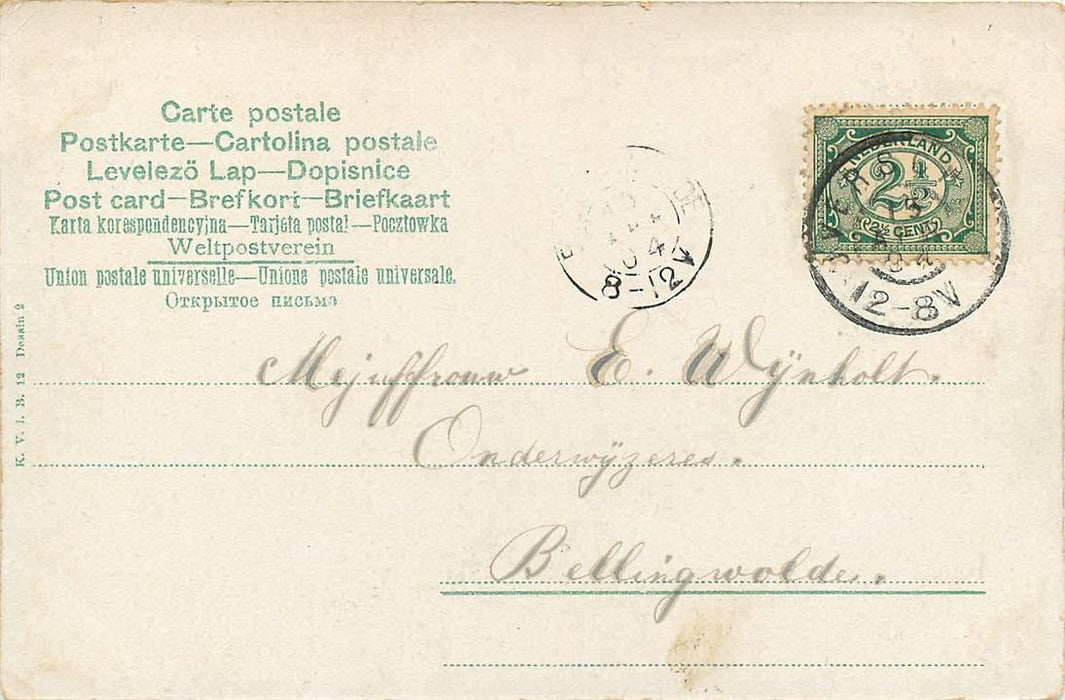 Carte postale
Postkarte—Cartolina postale
Levelező Lap—Dopisnice
Post card—Brefkort—Briefkaart
Karta korespondencyjna—Tarjeta postal—Pocztowka
Weltpostverein
Union postale universelle—Unione postale universale.
Открытое письмо
K. V. i. B. 12 Dessin 2
NEDERLAND
2½
2½ CENT
12-8V
04
8-12V
Mejuffrouw E. Wijnholt.
Onderwijzeres.
Bellingwolde.